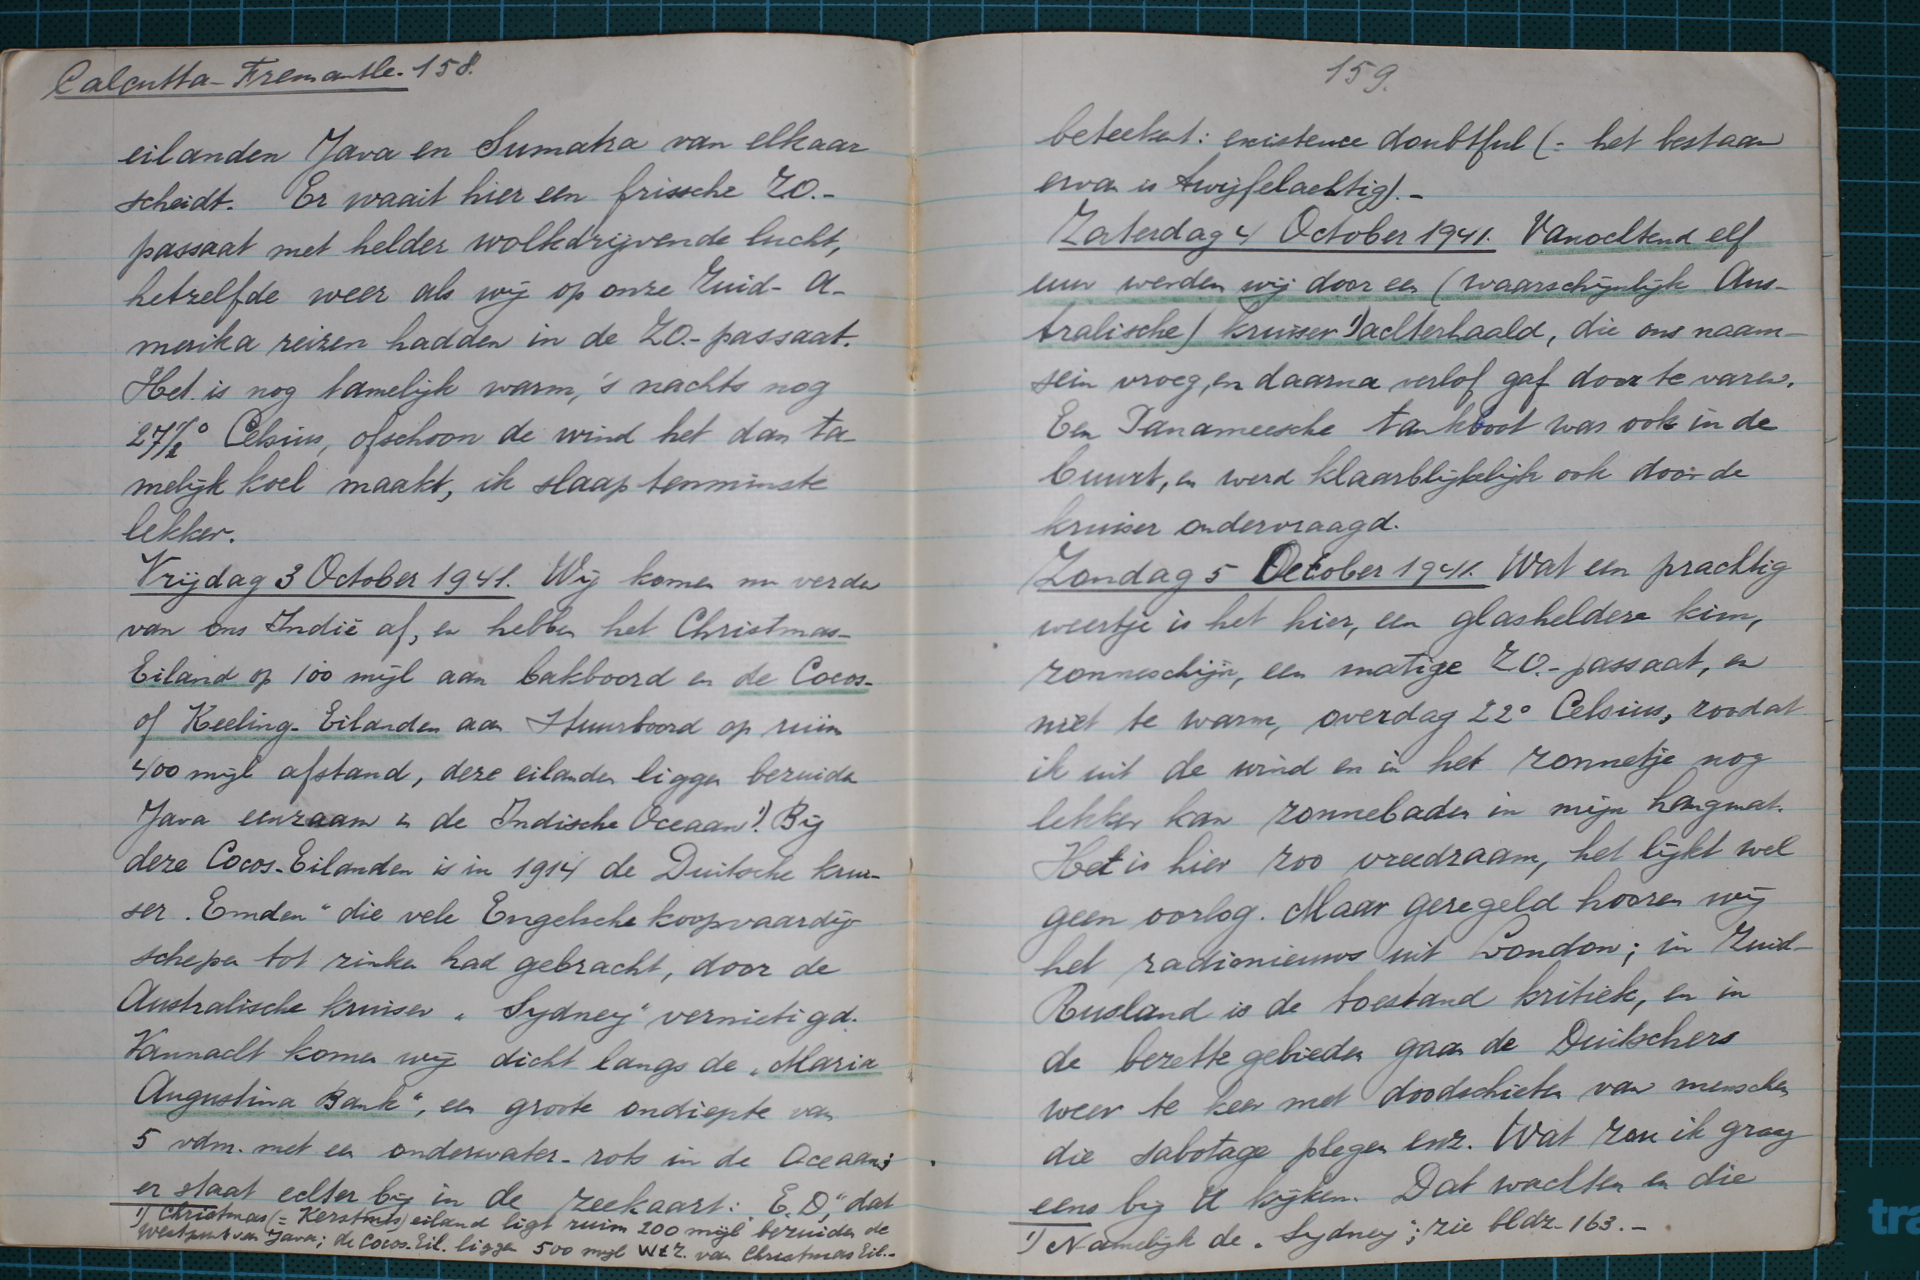 Calcutta-Fremantle. 158.
eilanden Java en Sumatra van elkaar
scheidt. Er waait hier een frissche ZO.-
passaat met helder wolkdrijvende lucht,
hetzelfde weer als wij op onze Zuid-A-
merika reizen hadden in de ZO.-passaat.
Het is nog tamelijk warm, 's nachts nog
27½° Celsius, ofschoon de wind het dan ta-
melijk koel maakt, ik slaap tenminste
lekker.
Vrijdag 3 October 1941. Wij komen nu verder
van ons Indië af, en hebben het Christmas-
Eiland op 100 mijl aan bakboord en de Cocos-
of Keeling-Eilanden aan stuurboord op ruim
400 mijl afstand, deze eilanden liggen bezuiden
Java eenzaam in de Indische Oceaan ¹). Bij
deze Cocos-Eilanden is in 1914 de Duitsche krui-
ser „Emden" die vele Engelsche koopvaardij-
schepen tot zinken had gebracht, door de
Australische kruiser „Sydney" vernietigd.
Vannacht komen wij dicht langs de „Maria
Augustina Bank", een groote ondiepte van
5 vdm. met een onderwater-rots in de Oceaan;
er staat echter bij in de zeekaart: „E.D.," dat
¹) Christmas (= Kerstmis) eiland ligt ruim 200 mijl bezuiden de
Westpunt van Java; de Cocos-Eil. liggen 500 mijl WtZ. van Christmas Eil.-
159.
beteekent: existence doubtful (= het bestaan
ervan is twijfelachtig).-
Zaterdag 4 October 1941. Vanochtend elf
uur werden wij door een (waarschijnlijk Aus-
tralische) kruiser ¹) achterhaald, die ons naam-
sein vroeg, en daarna verlof gaf door te varen.
Een Panameesche tankboot was ook in de
buurt, en werd klaarblijkelijk ook door de
kruiser ondervraagd.
Zondag 5 October 1941. Wat een prachtig
weertje is het hier, een glasheldere kim,
zonneschijn, een matige ZO.-passaat, en
niet te warm, overdag 22° Celsius, zoodat
ik uit de wind en in het zonnetje nog
lekker kan zonnebaden in mijn hangmat.
Het is hier zoo vreedzaam, het lijkt wel
geen oorlog. Maar geregeld hooren wij
het radionieuws uit London; in Zuid-
Rusland is de toestand kritiek, en in
de bezette gebieden gaan de Duitschers
weer te keer met doodschieten van menschen
die sabotage plegen enz. Wat zou ik graag
eens bij U kijken. Dat wachten en die
¹) Namelijk de „Sydney"; zie bldz. 163.-
tra